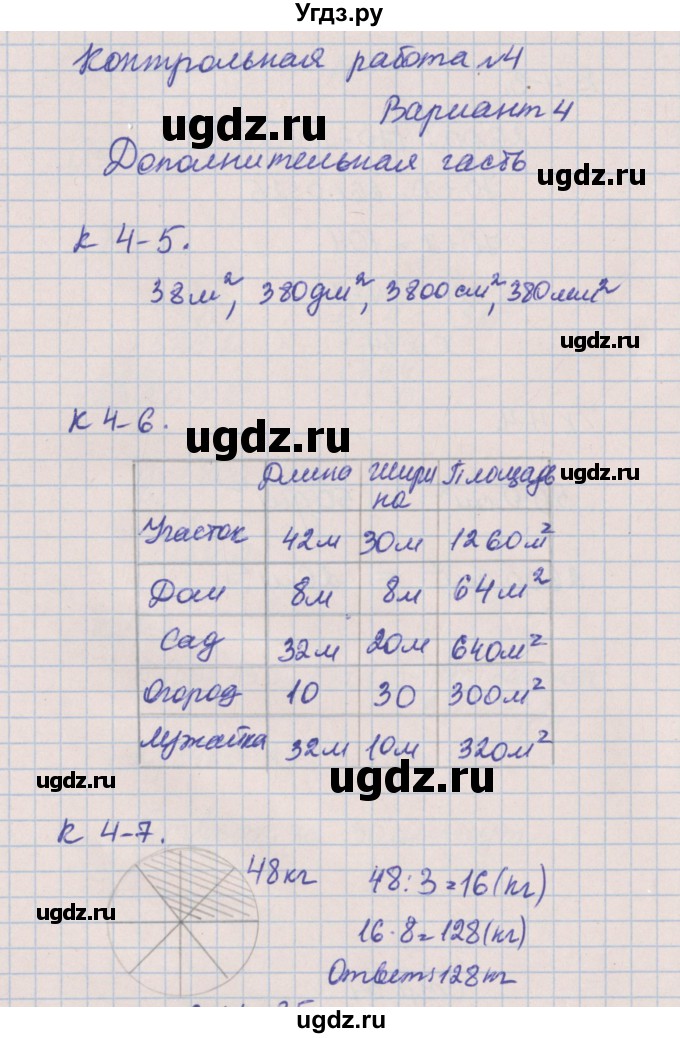 Угдз.ру
Контрольная работа №4
ugdz.ru
Вариант 4
Дополнительная часть
ugdz.ru
К 4-5.
38м², 380дм², 3800см², 380мм²
ugdz.ru
К 4-6.
ugdz.ru
Длина Шири на Площадь
Участок 42м 30м 1260м²
Дом 8м 8м 64м²
Сад 32м 20м 640м²
Огород 10 30 300м²
Лужайка 32м 10м 320м²
ugdz.ru
ugdz.ru
К 4-7.
48кг 48:3=16(кг)
ugdz.ru
16·8=128(кг)
Ответ: 128кг
ugdz.ru